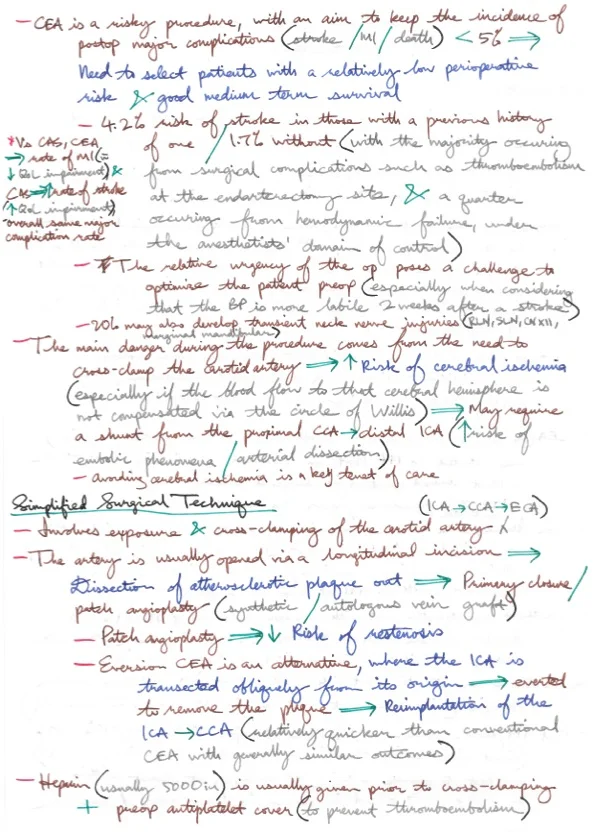 — CEA is a risky procedure, with an aim to keep the incidence of
postop major complications (stroke / MI / death) < 5% ⇒
Need to select patients with a relatively low perioperative
risk & good medium term survival
— 4.2% risk of stroke in those with a previous history
of one / 1.7% without (with the majority occuring
from surgical complications such as thromboembolism
at the endarterectomy site, & a quarter
occuring from hemodynamic failure, under
the anesthetists' domain of control)
* Vs CAS, CEA
→ rate of MI (=
↓ QoL impairment) &
CAS → ↑ rate of stroke
(↑ QoL impairment),
overall same major
complication rate
— The relative urgency of the op poses a challenge to
optimise the patient preop (especially when considering
that the BP is more labile 2 weeks after a stroke)
— 20% may also develop transient neck nerve injuries (RLN, SLN, CN XII,
marginal mandibular)
— The main danger during the procedure comes from the need to
cross-clamp the carotid artery ⇒ ↑ Risk of cerebral ischemia
(especially if the blood flow to that cerebral hemisphere is
not compensated via the circle of Willis) ⇒ May require
a shunt from the proximal CCA → distal ICA (↑ risk of
embolic phenomena / arterial dissection)
— avoiding cerebral ischemia is a key tenet of care
Simplified Surgical Technique
(ICA → CCA → ECA)
— Involves exposure & cross-clamping of the carotid artery
— The artery is usually opened via a longitudinal incision ⇒
Dissection of atherosclerotic plaque out ⇒ Primary closure /
patch angioplasty (synthetic / autologous vein graft)
— Patch angioplasty ⇒ ↓ Risk of restenosis
— Eversion CEA is an alternative, where the ICA is
transected obliquely from its origin ⇒ everted
to remove the plaque ⇒ Reimplantation of the
ICA → CCA (relatively quicker than conventional
CEA with generally similar outcomes)
— Heparin (usually 5000iu) is usually given prior to cross-clamping
+ preop antiplatelet cover (to prevent thromboembolism)